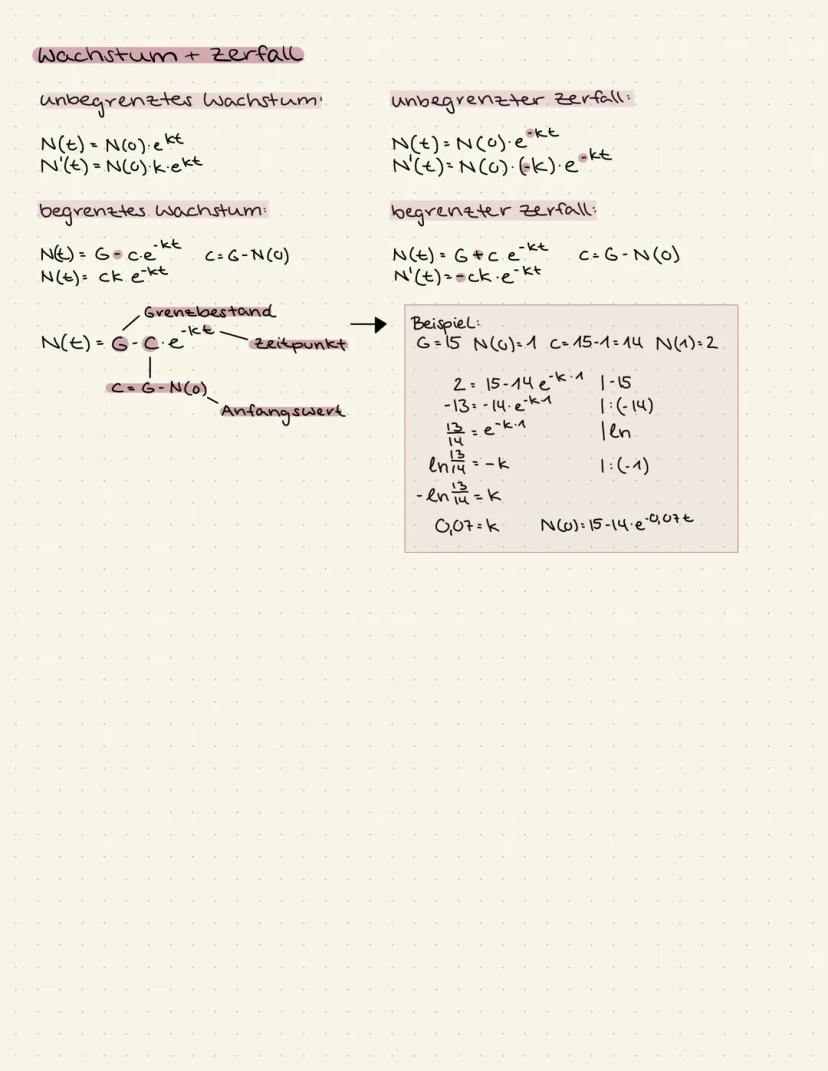 Wachstum + Zerfall
unbegrenztes Wachstum:
N(t) = N(0)·e^kt
N'(t) = N(0)·k·e^kt
unbegrenzter Zerfall:
N(t) = N(0)·e^-kt
N'(t) = N(0)·(-k)·e^-kt
begrenztes Wachstum:
N(t) = G - c·e^-kt C = G - N(0)
N(t) = ck e^-kt
begrenzter Zerfall:
N(t) = G + c e^-kt C = G - N(0)
N'(t) = -ck·e^-kt
Grenzbestand
N(t) = G - C·e^-kt
Zeitpunkt
C = G - N(0)
Anfangswert
Beispiel:
G = 15 N(0) = 1 C = 15-1 = 14 N(1) = 2
2 = 15 - 14 e^-k·1 |-15
-13 = -14·e^-k·1 |:(-14)
13/14 = e^-k·1 |ln
ln 13/14 = -k |:(-1)
-ln 13/14 = k
0,07 = k N(0) = 15 - 14·e^-0,07t